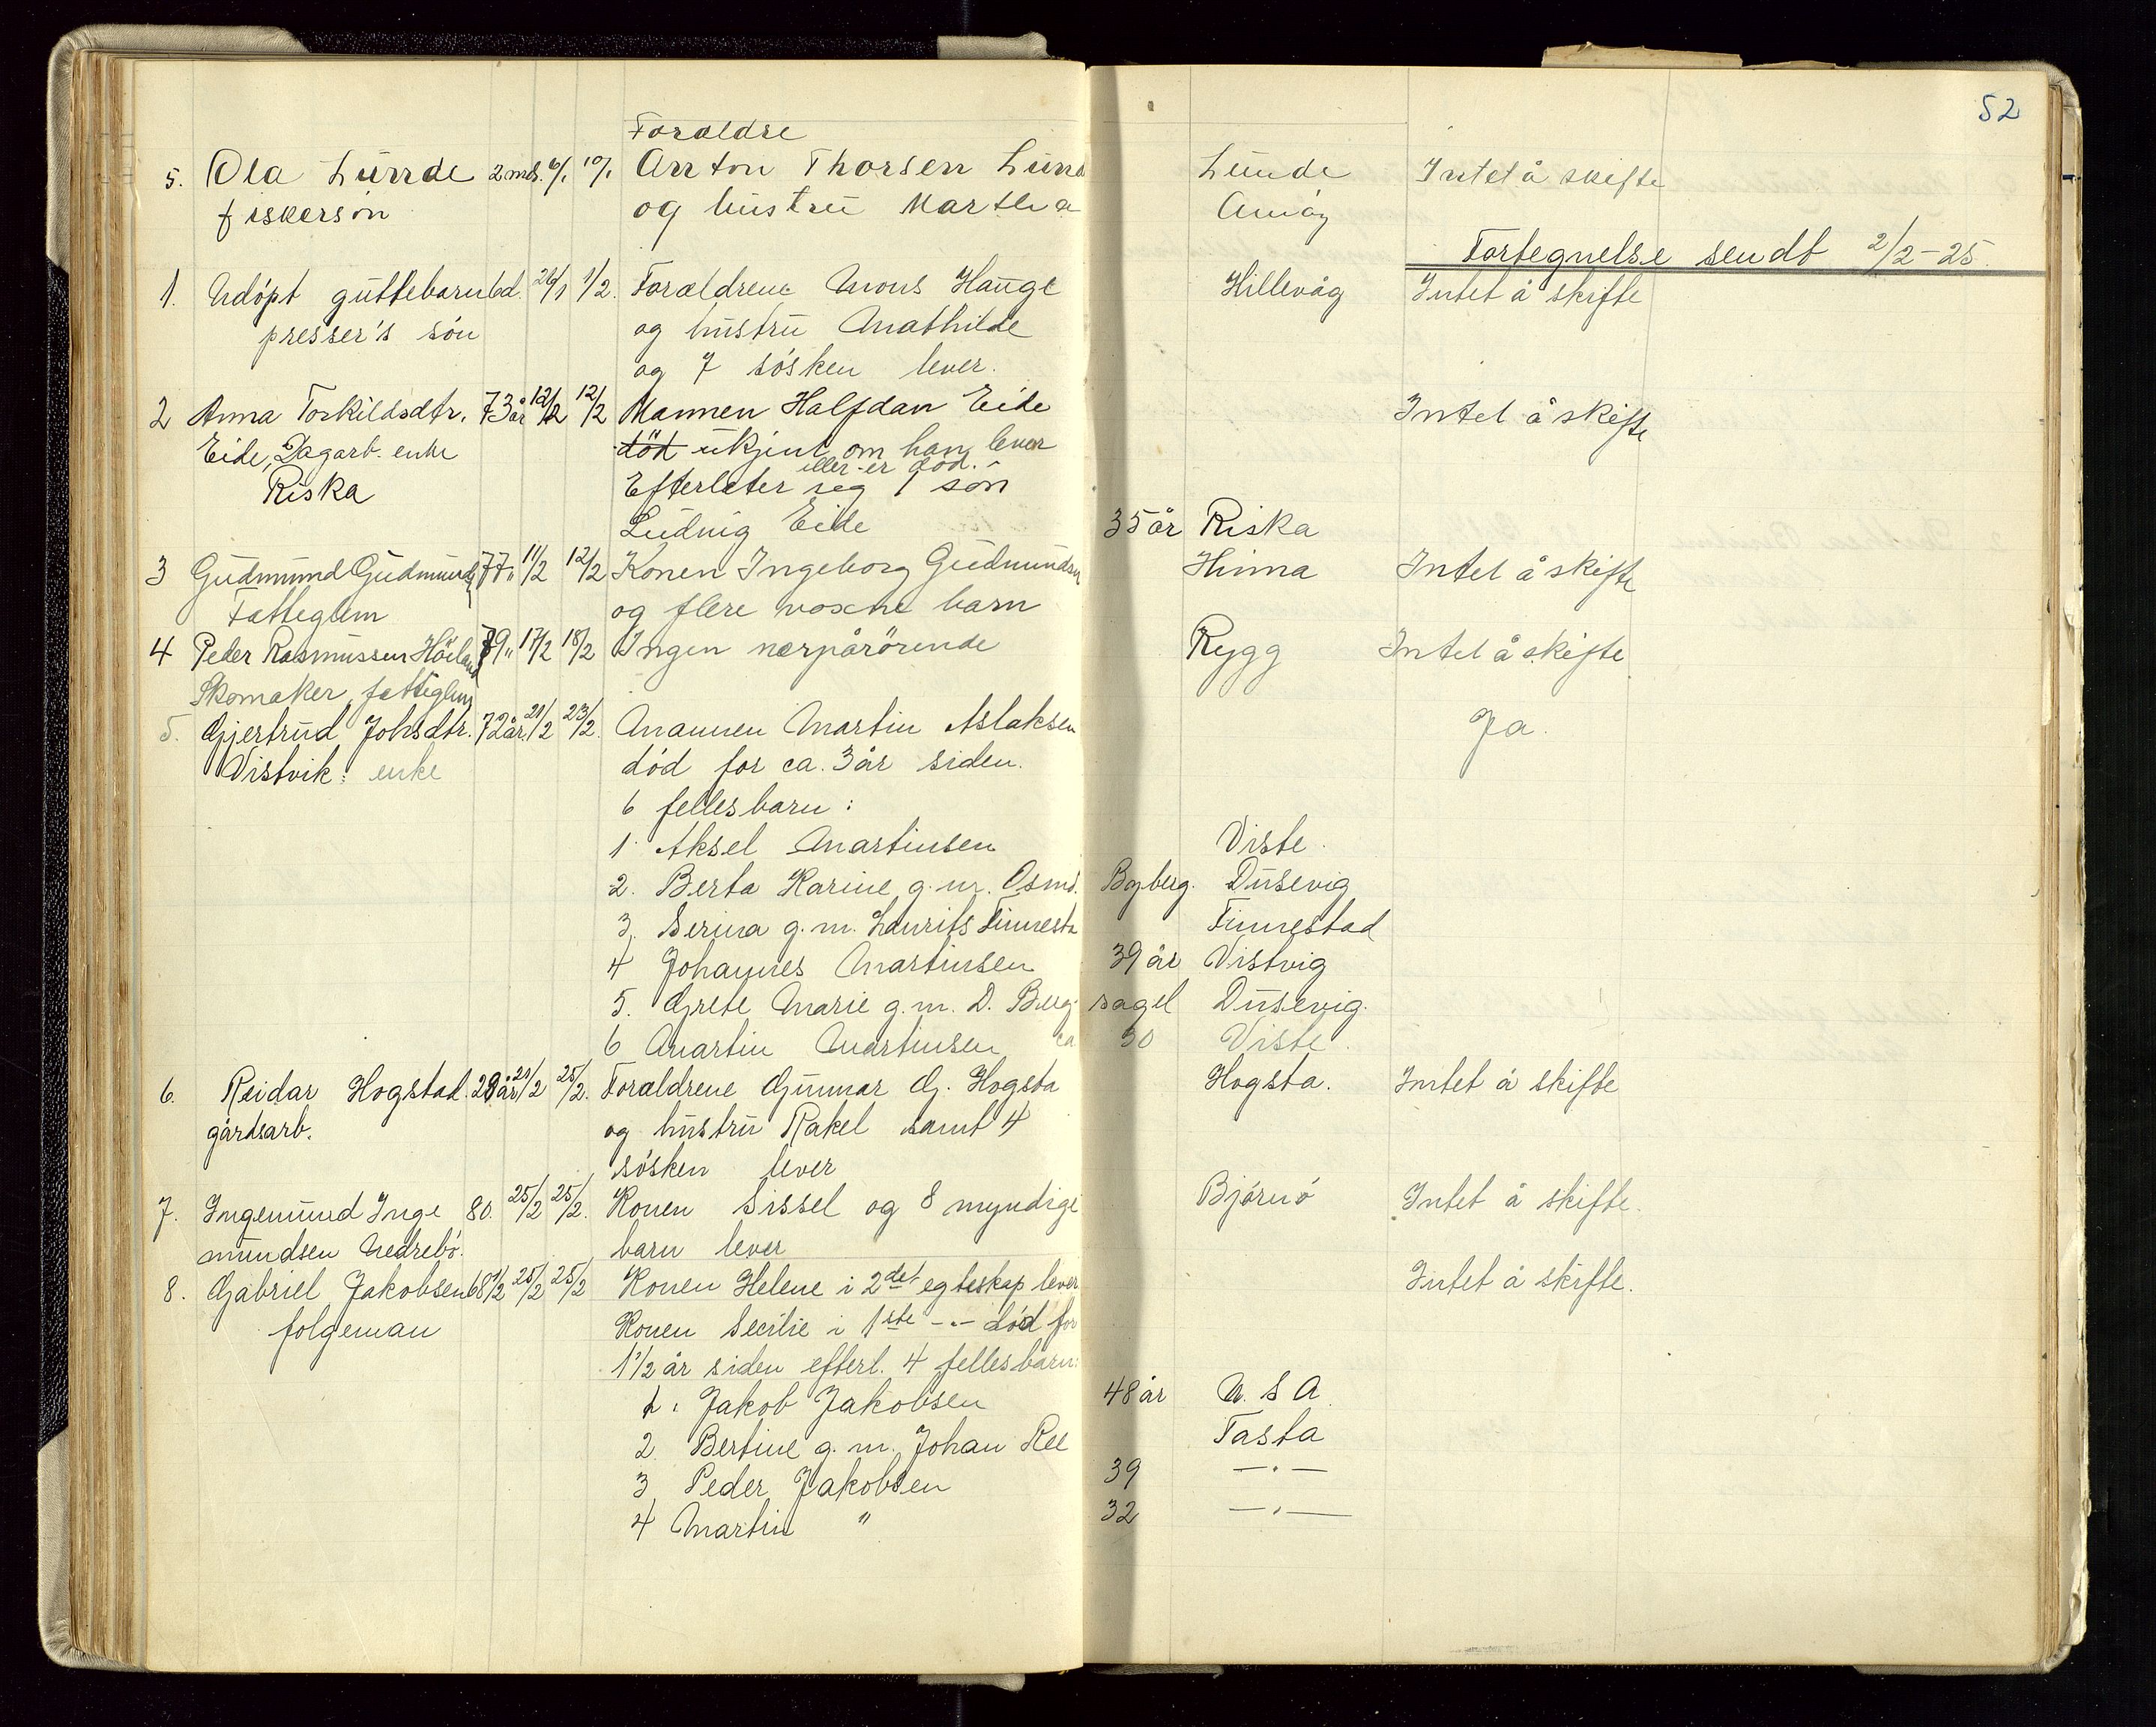 52
Foraldre
5. Ola Lunde 2 mds. 6/1 10/1 Anton Thorsen Lund Lunde Intet å skifte
fiskersön og hustru Martha Amöy
Fortegnelse sendt 2/2-25.
1. Udöpt guttebarn 6d. 26/1 1/2. Foraldrene Mons Hauge Hillevåg Intet å skifte
presser's sön og hustru Mathilde
og 7 sösken lever.
2 Anna Torkildsdtr. 73 år 12/2 12/2 Mannen Halfdan Eide Intet å skifte
Eide, Dagarb. enke död ukjent om han lever
eller er död.
Riska Efterlater seg 1 sön
Ludvig Eide 35 år Riska
3 Gudmund Gudmunds 77 " 11/2 12/2 Konen Ingeborg Gudmundsn Hinna Intet å skifte
Fatteglem og flere voxne barn
4 Peder Rasmussen Höiland 79 " 17/2 18/2 Ingen nærpårörende Rygg Intet å skifte
Skomaker, fattiglem
5. Gjertrud Johsdtr. 72 år. 21/2 23/2. Mannen Martin Aslaksen Ja.
Vistvik: enke död for ca. 3 år siden.
6 fellesbarn:
1. Aksel Martinsen Viste.
2. Berta Karine g.m. Osmd. Byberg. Dusevig
3. Serina g.m. Laurits Finnesta Finnestad
4 Johannes Martinsen 39 år Vistvig
5. Grete Marie g.m. D. Berg sagel Dusevig.
6 Martin Martinsen ca 30 Viste.
6. Reidar Hogstad. 29 år 21/2 25/2. Foraldrene Gunnar G. Hogsta Hogsta. Intet å skifte
gårdsarb. og hustru Rakel samt 4
sösken lever
7. Ingemund Inge 80. 25/2 25/2. Konen Sissel og 8 myndige Björnö Intet å skifte.
mundsen Nedrebö. barn lever
8. Gabriel Jakobsen 68 1/2 25/2 25/2 Konen Helene i 2det egteskap lever Intet å skifte.
folgeman Konen Secilie i 1ste -"- död for
1 1/2 år siden efterl. 4 fellesbarn:
1. Jakob Jakobsen 48 år U.S.A.
2 Bertine g.m. Johan Ree Tasta
3 Peder Jakobsen 39 -"-
4 Martin " 32 -"-